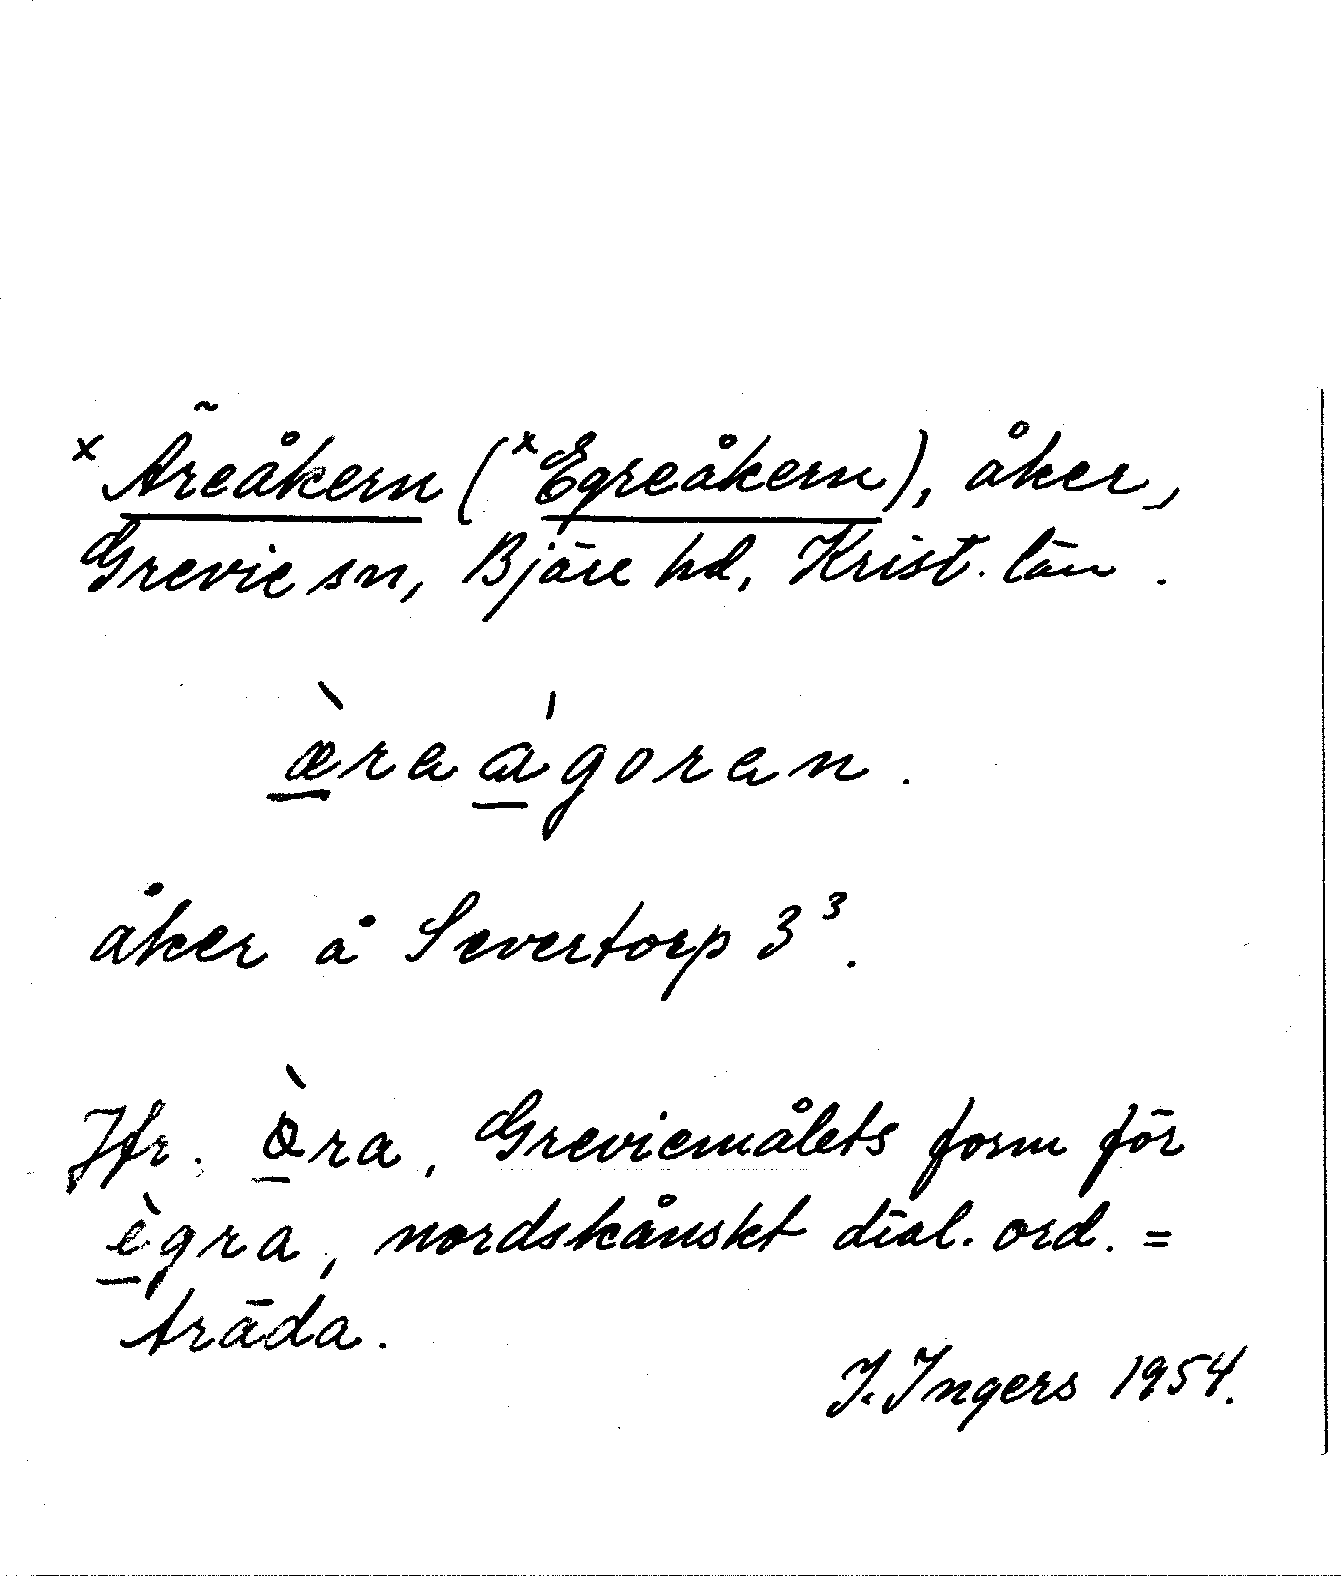 ˣÄreåkern (ˣEgreåkern), åker,
Grevie sn, Bjäre hd, Krist. län.
æ̀ra ág̵oran.
åker å Severtorp 3³.
Jfr. æ̀ra, Greviemålets form för
ègra, nordskånskt dial. ord. =
träda.
I. Ingers 1954.